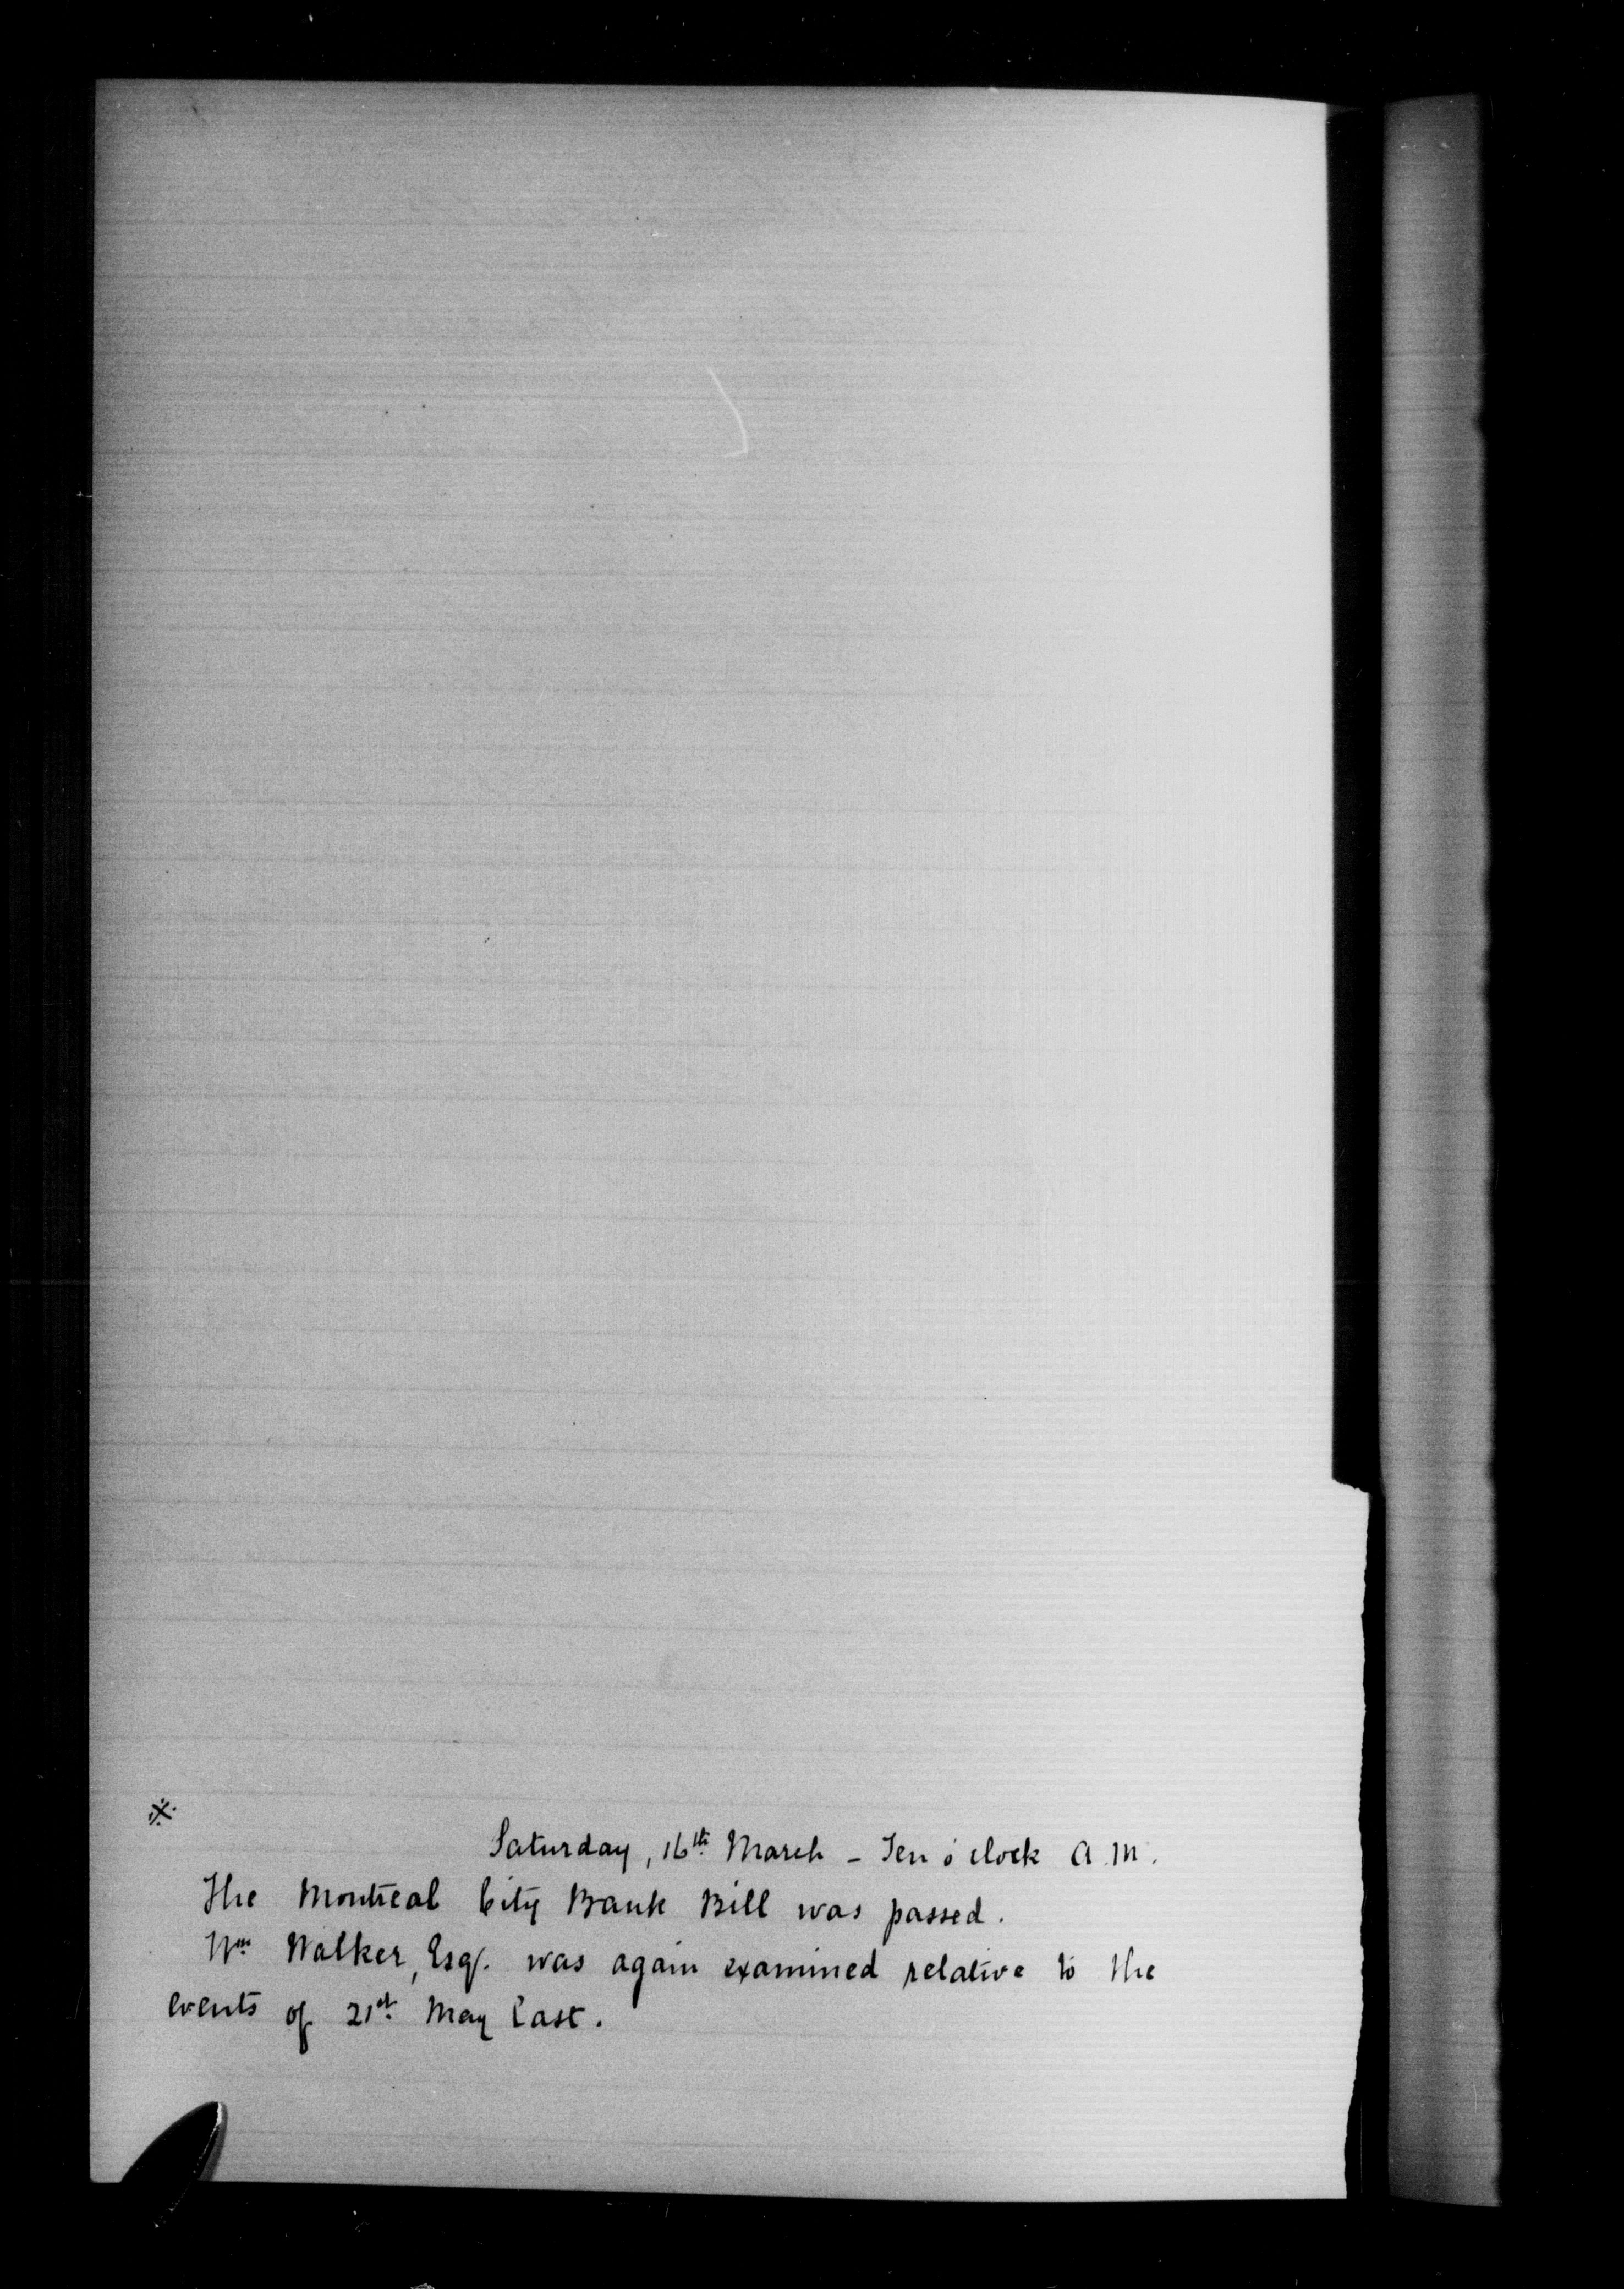 ※
Saturday, 16th March - Ten o'clock A.M.
The Montreal City Bank Bill was passed.
Wm Walker, Esq. was again examined relative to the
events of 21st May last.